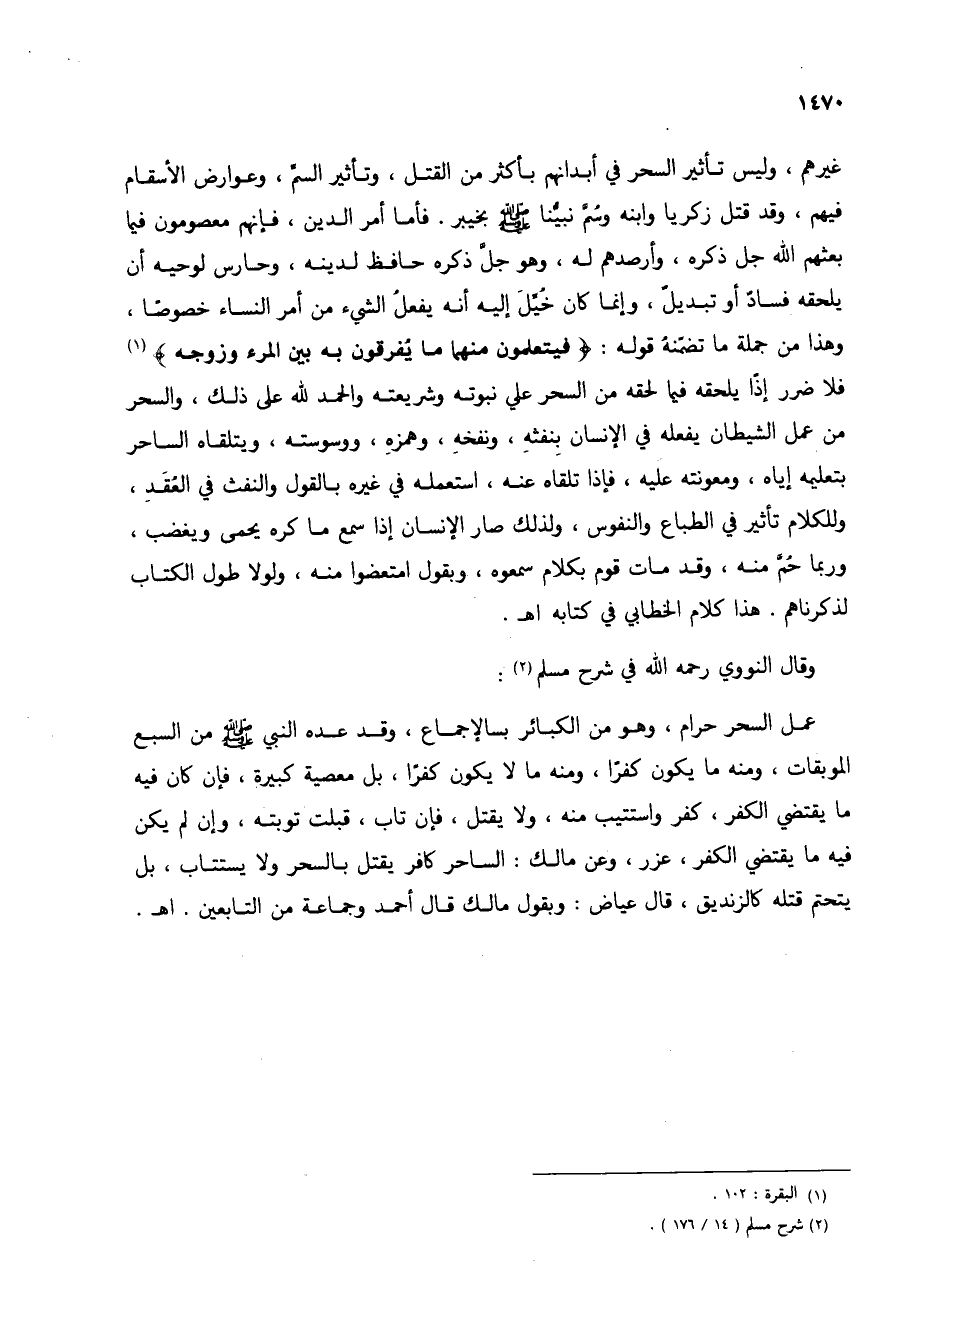 ١٤٧٠
غيرهم ، وليس تأثير السحر في أبدانهم بأكثر من القتل ، وتأثير السمّ ، وعوارض الأسقام
فيهم ، وقد قتل زكريا وابنه وسُمَّ نبيُّنا ﷺ بخيبر . فأما أمر الدين ، فإنهم معصومون فيما
بعثهم الله جل ذكره ، وأرصدهم له ، وهو جلَّ ذكره حافظ لدينه ، وحارس لوحيه أن
يلحقه فسادٌ أو تبديلٌ ، وإنما كان خُيِّلَ إليه أنه يفعلُ الشيء من أمر النساء خصوصًا ،
وهذا من جملة ما تضمّنهُ قوله : ﴿ فيتعلمون منهما ما يُفرقون به بين المرء وزوجه ﴾ (١)
فلا ضرر إذًا يلحقه فيما لحقه من السحر علي نبوته وشريعته والحمد لله على ذلك ، والسحر
من عمل الشيطان يفعله في الإنسان بِنفثهِ ، ونفخهِ ، وهمزهِ ، ووسوسته ، ويتلقاه الساحر
بتعليمه إياه ، ومعونته عليه ، فإذا تلقاه عنه ، استعمله في غيره بالقول والنفث في العُقَدِ ،
وللكلام تأثير في الطباع والنفوس ، ولذلك صار الإنسان إذا سمع ما كره يحمى ويغضب ،
وربما حُمَّ منه ، وقد مات قوم بكلام سمعوه ، وبقول امتعضوا منه ، ولولا طول الكتاب
لذكرناهم . هذا كلام الخطابي في كتابه اهـ .
وقال النووي رحمه الله في شرح مسلم (٢) :
عمل السحر حرام ، وهو من الكبائر بالإجماع ، وقد عده النبي ﷺ من السبع
الموبقات ، ومنه ما يكون كفرًا ، ومنه ما لا يكون كفرًا ، بل معصية كبيرة ، فإن كان فيه
ما يقتضي الكفر ، كفر واستتيب منه ، ولا يقتل ، فإن تاب ، قبلت توبته ، وإن لم يكن
فيه ما يقتضي الكفر ، عزر ، وعن مالك : الساحر كافر يقتل بالسحر ولا يستتاب ، بل
يتحتم قتله كالزنديق ، قال عياض : وبقول مالك قال أحمد وجماعة من التابعين . اهـ .
(١) البقرة : ١٠٢ .
(٢) شرح مسلم ( ١٤ / ١٧٦ ) .